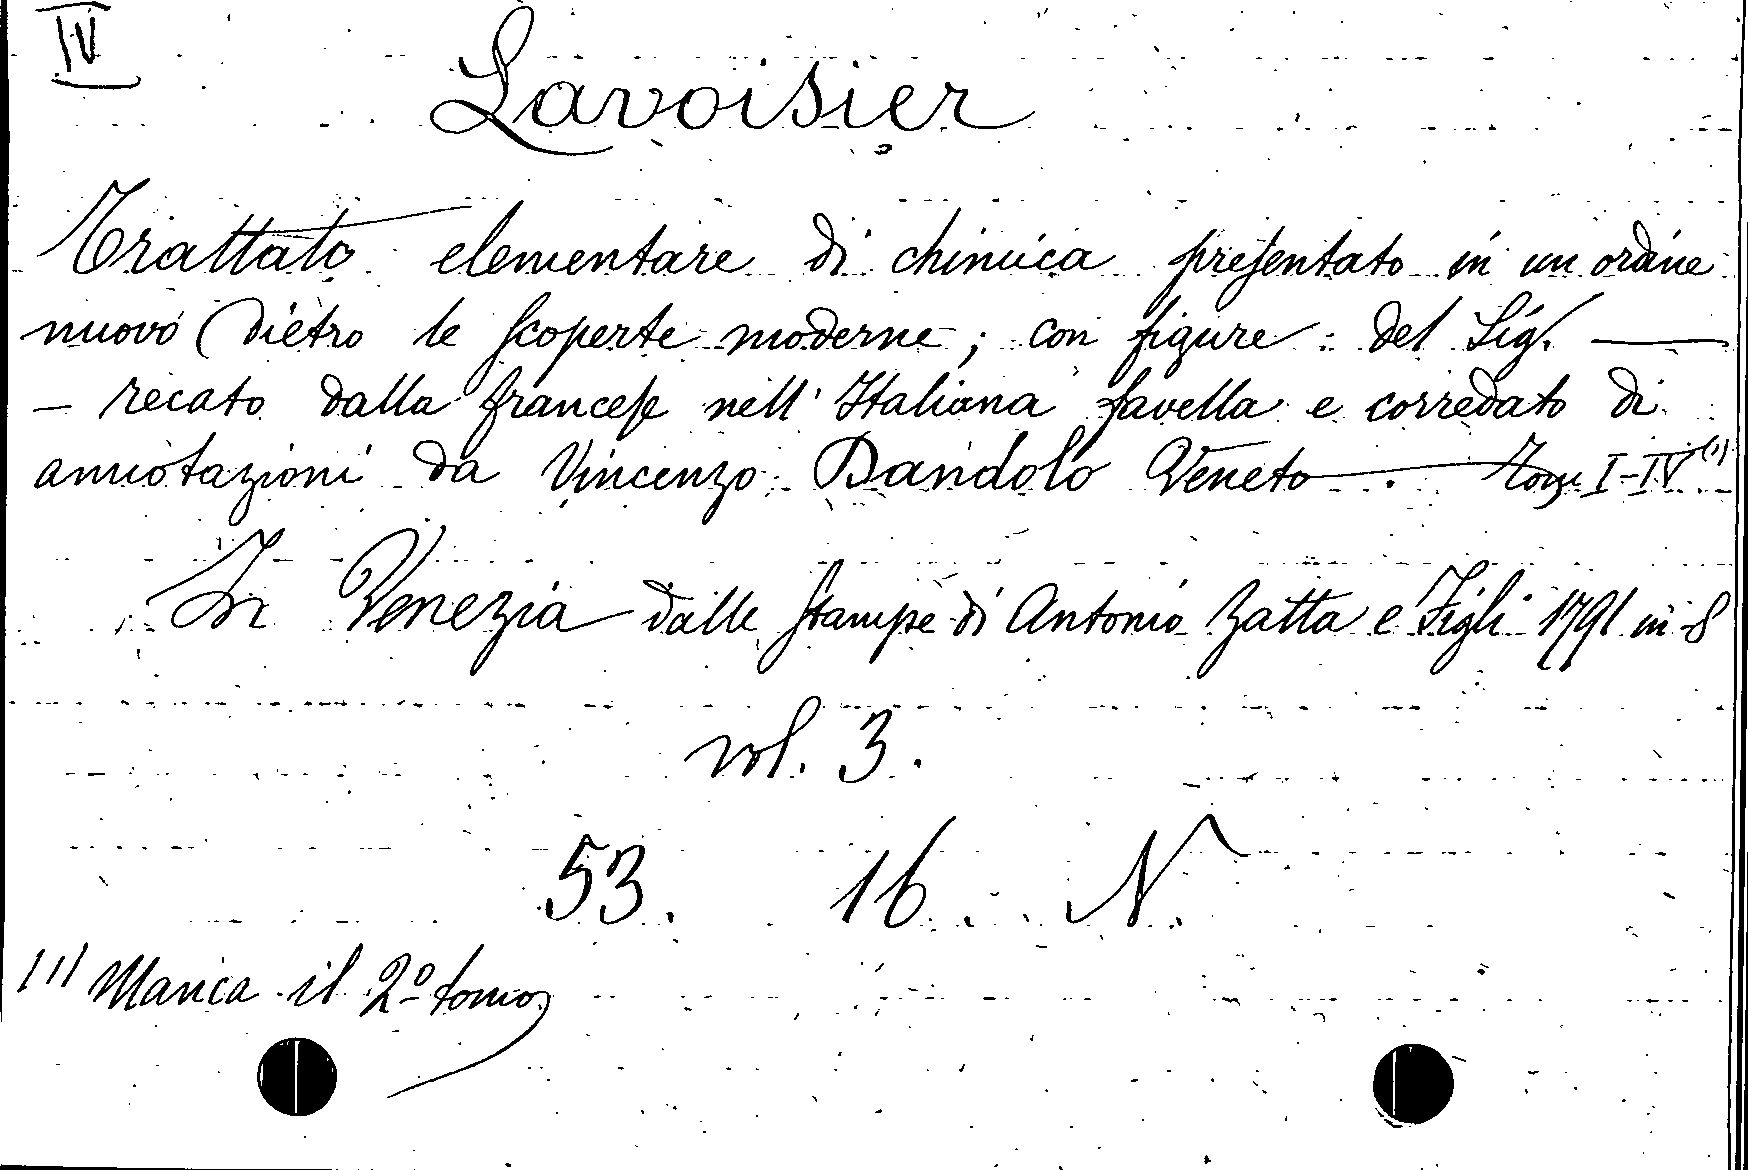 IV
Lavoisier
Trattato elementare di chimica presentato in un ordine
nuovo dietro le scoperte moderne; con figure: del Sig. —
— recato dalla francese nell' Italiana favella e corredato di
annotazioni da Vincenzo Dandolo Veneto. Tomi I-IV (1)
In Venezia dalle stampe di Antonio Zatta e Figli 1791 in-8
vol. 3.
53. 16. N.
(1) Manca il 2º tomo